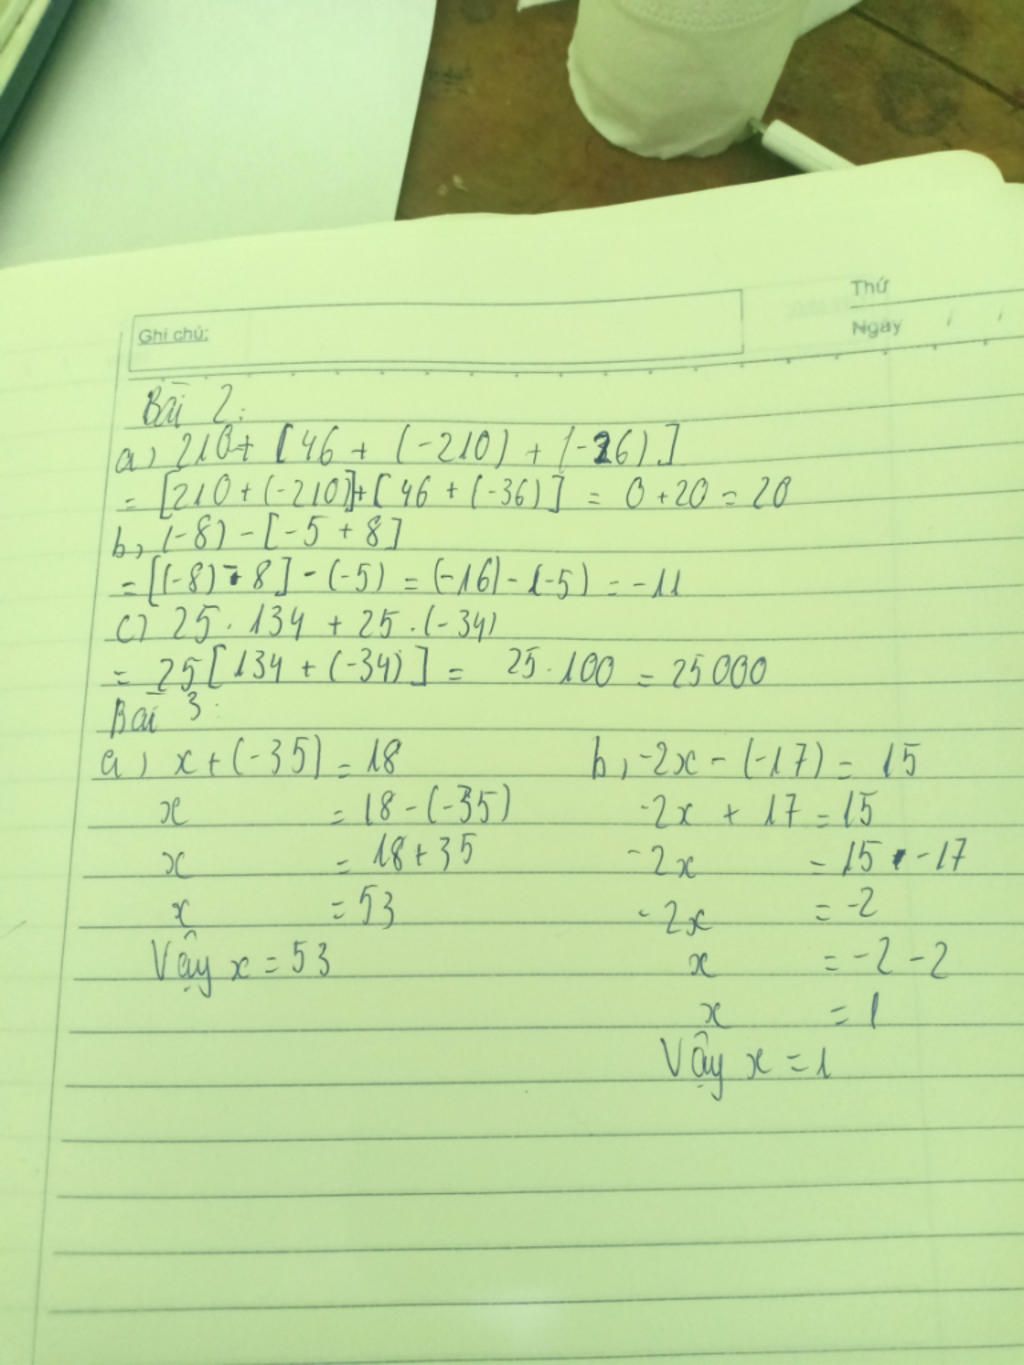 Thứ
Ghi chú:
Ngày / /
Bài 2:
a) 210 + [46 + (-210) + (-26)]
= [210 + (-210)] + [46 + (-36)] = 0 + 20 = 20
b) (-8) - [-5 + 8]
= [(-8) - 8] - (-5) = (-16) - (-5) = -11
c) 25 . 134 + 25 . (-34)
= 25 [134 + (-34)] = 25 . 100 = 25000
Bài 3:
a) x + (-35) = 18
x = 18 - (-35)
x = 18 + 35
x = 53
Vậy x = 53
b) -2x - (-17) = 15
-2x + 17 = 15
-2x = 15 - 17
-2x = -2
x = -2 - 2
x = 1
Vậy x = 1